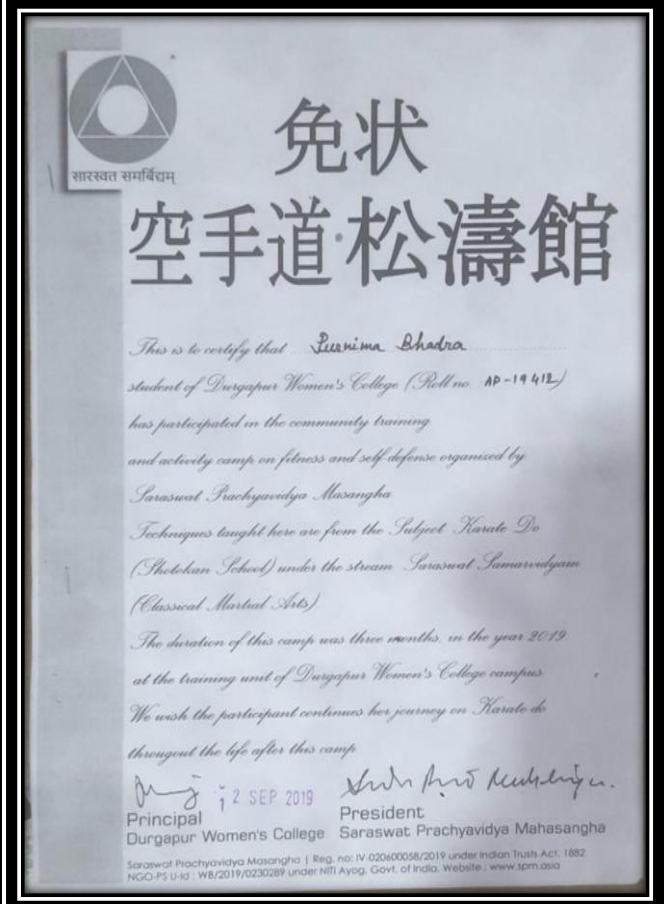 सारस्वत समर्बिद्यम्
免状
空手道·松濤館
This is to certify that Purnima Bhadra
student of Durgapur Women's College (Roll no. AP-19412)
has participated in the community training
and activity camp on fitness and self defense organized by
Saraswat Prachyavidya Masangha
Techniques taught here are from the Subject Karate Do
(Shotokan School) under the stream Saraswat Samarvidyam
(Classical Martial Arts)
The duration of this camp was three months, in the year 2019
at the training unit of Durgapur Women's College campus
We wish the participant continues her journey on Karate do
througout the life after this camp
2 SEP 2019
Principal President
Durgapur Women's College Saraswat Prachyavidya Mahasangha
Saraswat Prachyavidya Masangha | Reg. no: IV-020600058/2019 under Indian Trusts Act, 1882
NGO-PS U-Id : WB/2019/0230289 under NITI Ayog, Govt. of India. Website : www.spm.asia